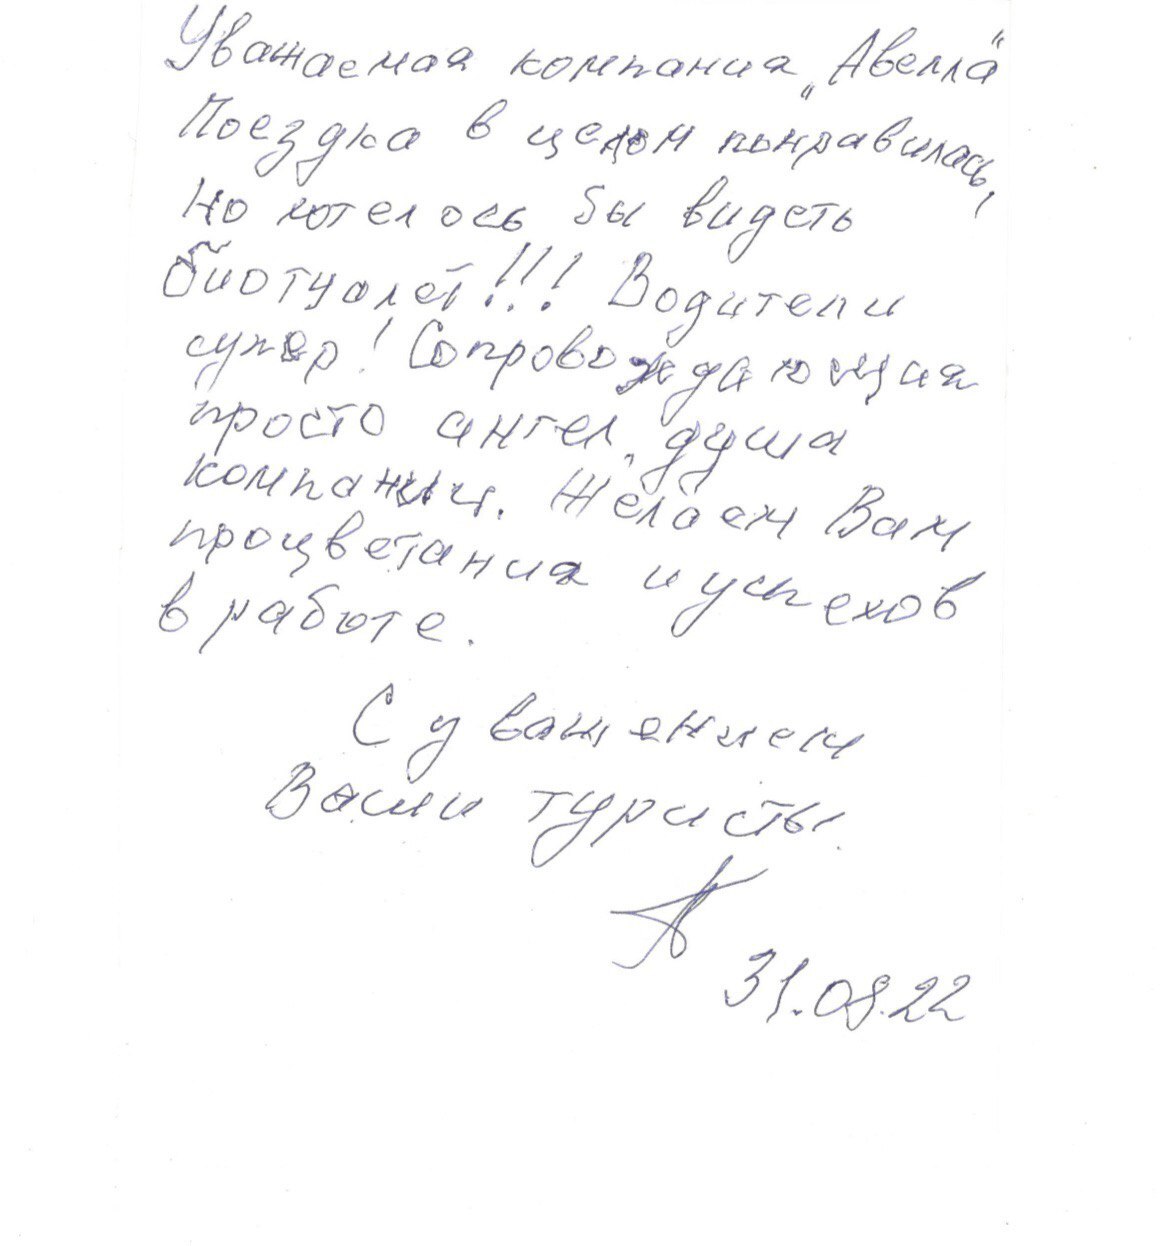 Уважаемая компания „Авелла“
Поездка в целом понравилась,
но хотелось бы видеть
биотуалет!!! Водители
супер! Сопровождающая
просто ангел, душа
компании. Желаем Вам
процветания и успехов
в работе.
С уважением
Ваши туристы.
31.08.22